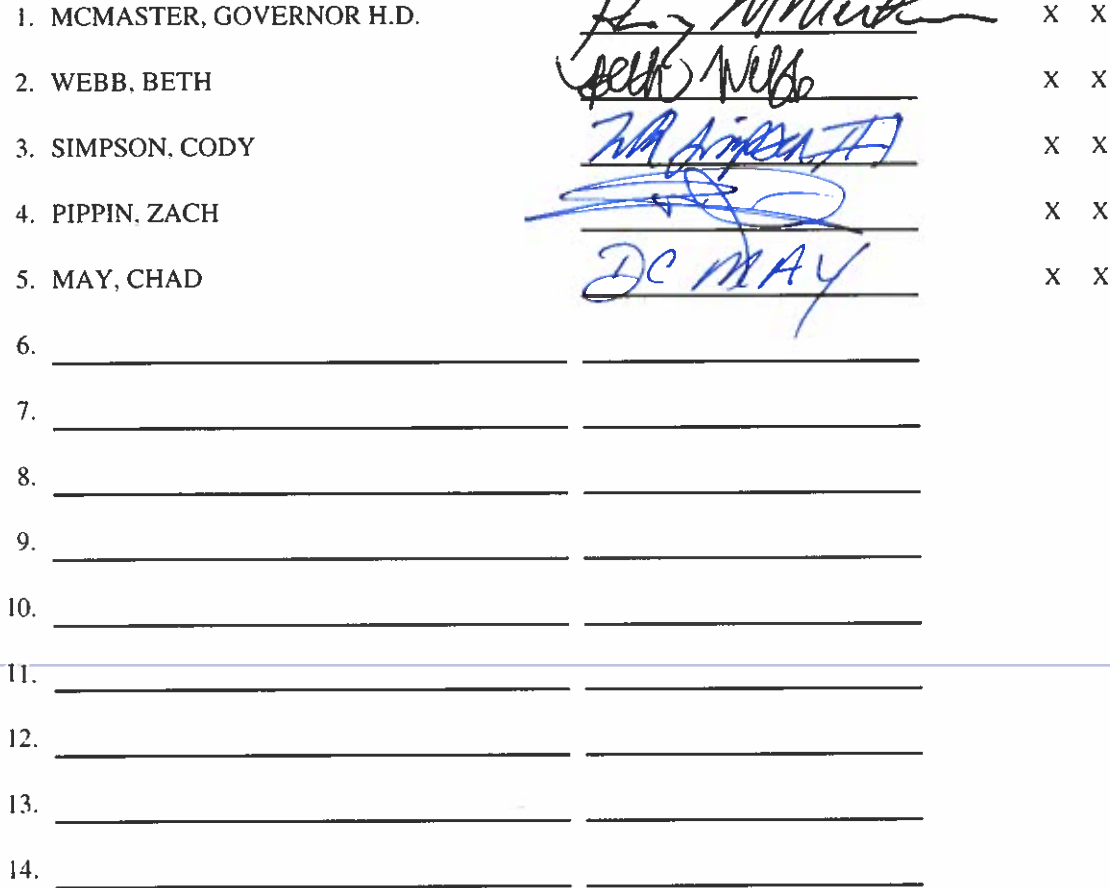 1. MCMASTER, GOVERNOR H.D. X X
2. WEBB, BETH Beth Webb X X
3. SIMPSON, CODY X X
4. PIPPIN, ZACH X X
5. MAY, CHAD DC MAY X X
6.
7.
8.
9.
10.
11.
12.
13.
14.